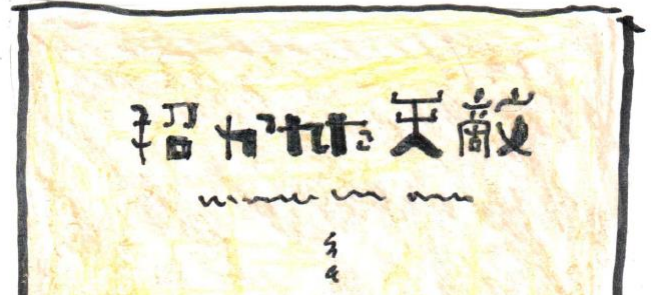 招かれた天敵